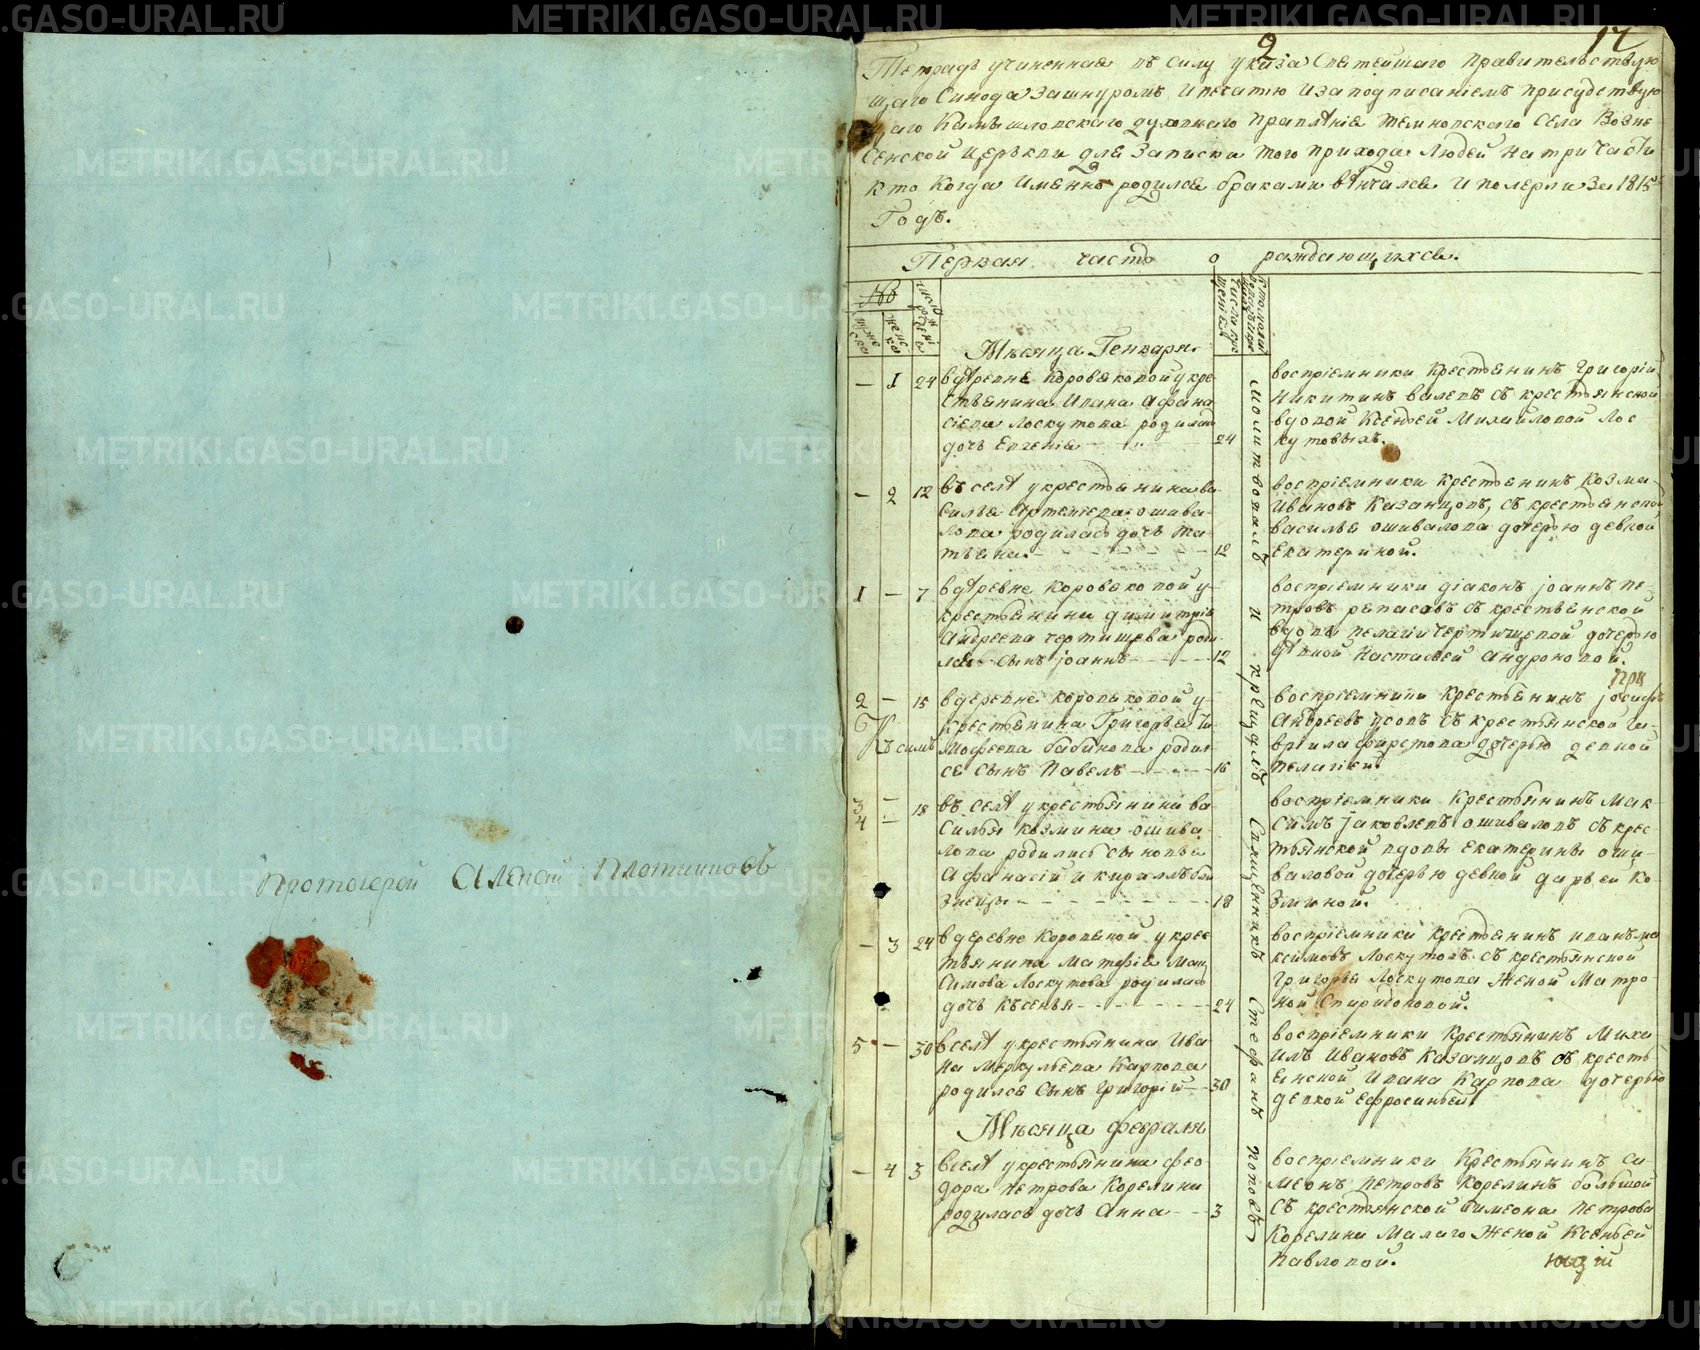 Протоиерей Алексей Плотниковъ
2 17
Тетрадь учиненная въ силу указа Святейшаго Правительствую
щаго Синода зашнуромъ и печатию и заподписаниемъ присудствую
щаго Камышловскаго духовнаго правления Темновскаго села Возне
сенской церкви для записки того прихода людей на три части
кто когда именно родился браками венчался и померли за 1815й
Годъ.
Первая часть о раждающихся.
№
муже ска
жене ка
число рождения
Месяца Генваря.
— 1 24 в деревне Коровяковой у кре
стьянина Ивана Афана
сиева Лоскутова родилась
дочь Евгения 24
воспріемники крестьянинъ Григорій
Никитинъ съ крестьянской
вдовой Ксеньей Михайловой Лос
кутовыхъ.
— 2 12 въ селѣ у крестьянина ва
силья Артемьева Ошива
лова родилась дочь Та
тьяна. 12
воспріемники крестьянинъ Козма
Ивановъ Казанцовъ, съ крестьянской
василья Ошивалова дочерью девкой
Екатериной.
1 — 7 в деревне Коровяковой у
крестьянина димитрія
Андреева Чертищева роди
лся сынъ Іоаннъ 12
воспріемники діаконъ Іоаннъ Пе
тровъ съ крестьянской
вдовы Пелагіи Чертищевой дочерью
дѣвкой Настасьей Андроновой.
2 — 15 в деревне Коровяковой у
крестьянина Григорья Ти
мофеева Бабинова родил
ся сынъ Павелъ 16
воспріемники крестьянинъ Іосифъ
Андреевъ Усовъ съ крестьянской га
врила Фирстова дочерью девкой
Пелагіей.
3 — 18 въ селѣ у крестьянина ва
4 — силья козмина Ошива
лова родились сыновья
Афанасій и Кириллъ бли
знецы 18
воспріемники крестьянинъ Мак
симъ Іаковлевъ Ошиваловъ съ крес
тьянской вдовы Екатерины Оши
валовой дочерью девкой Дарьей Ко
зминой.
— 3 24 в деревне Коровяковой у крес
тьянина Матфія Мак
симова Лоскутова родилась
дочь Ксенья 24
воспріемники крестьянинъ иванъ ма
ксимовъ Лоскутовъ съ крестьянской
Григорья Лоскутова женой Матро
ной Спиридоновой.
5 — 30 в селѣ у крестьянина Ива
на Меркульева Карпова
родился сынъ Григорій 30
воспріемники крестьянинъ Миха
илъ Ивановъ Казанцовъ съ кресть
янской Ивана Карпова дочерью
девкой Ефросиньей.
Месяца февраля
— 4 3 в селѣ у крестьянина Фео
дора Петрова Корелина
родилась дочь Анна 3
воспріемники крестьянинъ Си
меонъ Петровъ Корелинъ большой
съ крестьянской Симеона Петрова
Корелина Малаго женой Ксеньей
Павловой.
молитвовалъ и крещалъ Священникъ Стефанъ Поповъ